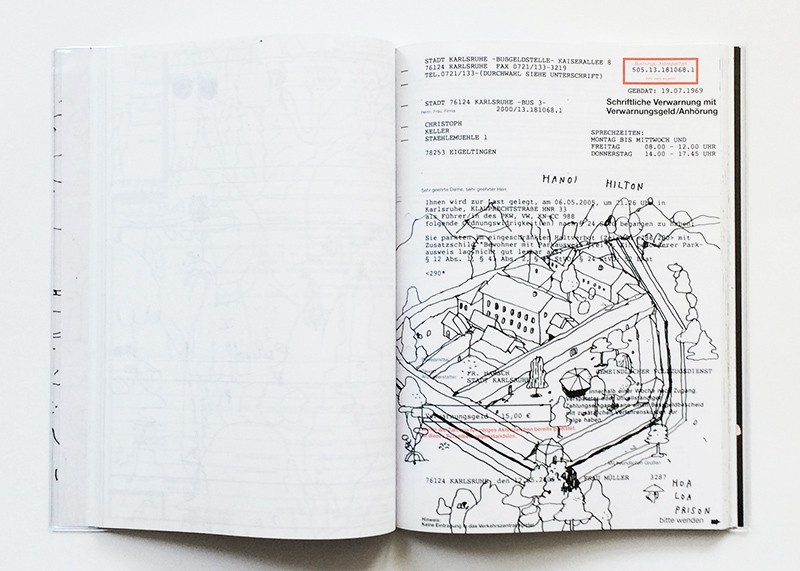 STADT KARLSRUHE -BUßGELDSTELLE- KAISERALLEE 8
76124 KARLSRUHE FAX 0721/133-3219
TEL.0721/133-(DURCHWAHL SIEHE UNTERSCHRIFT)
505.13.181068.1
GEBDAT: 19.07.1969
STADT 76124 KARLSRUHE -BUS 3-
Herrn, Frau, Firma
2000/13.181068.1
Schriftliche Verwarnung mit
Verwarnungsgeld/Anhörung
CHRISTOPH
KELLER
STAEHLEMUEHLE 1
78253 EIGELTINGEN
SPRECHZEITEN:
MONTAG BIS MITTWOCH UND
FREITAG 08.00 - 12.00 UHR
DONNERSTAG 14.00 - 17.45 UHR
HANOI HILTON
Sehr geehrte Dame, sehr geehrter Herr,
Ihnen wird zur Last gelegt, am 06.05.2005, um 21.26 Uhr in
Karlsruhe, KLAUPRECHTSTRAßE HNR 33
als Führer/in des PKW, VW, KN CC 988
folgende Ordnungswidrigkeit(en) nach § 24 begangen zu haben:
Sie parkten im eingeschränkten Haltverbot mit
Zusatzschild "Bewohner mit Parkausweis frei" Park-
ausweis lag nicht gut lesbar aus.
§ 12 Abs. § 4, Abs. 2, § StVO, § 24 StVG,
<290*
FR. HAASCH
STADT KARLSRUHE
GEMEINDLICHER VOLLZUGSDIENST
innerhalb einer Woche nach Zugang.
Verwarnungsgeld 15,00 €
Folge haben.
Mit freundlichen Grüßen
76124 KARLSRUHE, den FRAU MÜLLER 3287
HOA
LOA
PRISON
Hinweis:
Keine Eintragung in das Verkehrszentralregister
bitte wenden